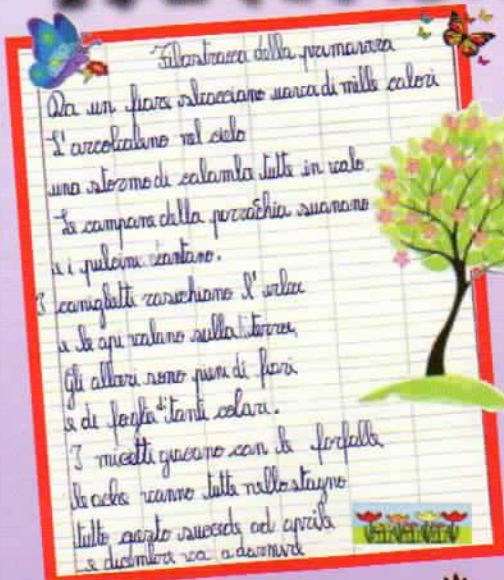 Filastrocca della primavera
Da un fiore sbocciano uova di mille colori
L'arcobaleno nel cielo
uno stormo di colombe tutte in volo.
Le campane della parrocchia suonano
e i pulcini cantano.
I coniglietti rosicchiano l'erba
e le api volano sulla terra,
Gli alberi sono pieni di fiori
e di foglie di tanti colori.
I micetti giocano con le farfalle
le oche vanno tutte nello stagno
tutto questo succede ad aprile
e dicembre va a dormire